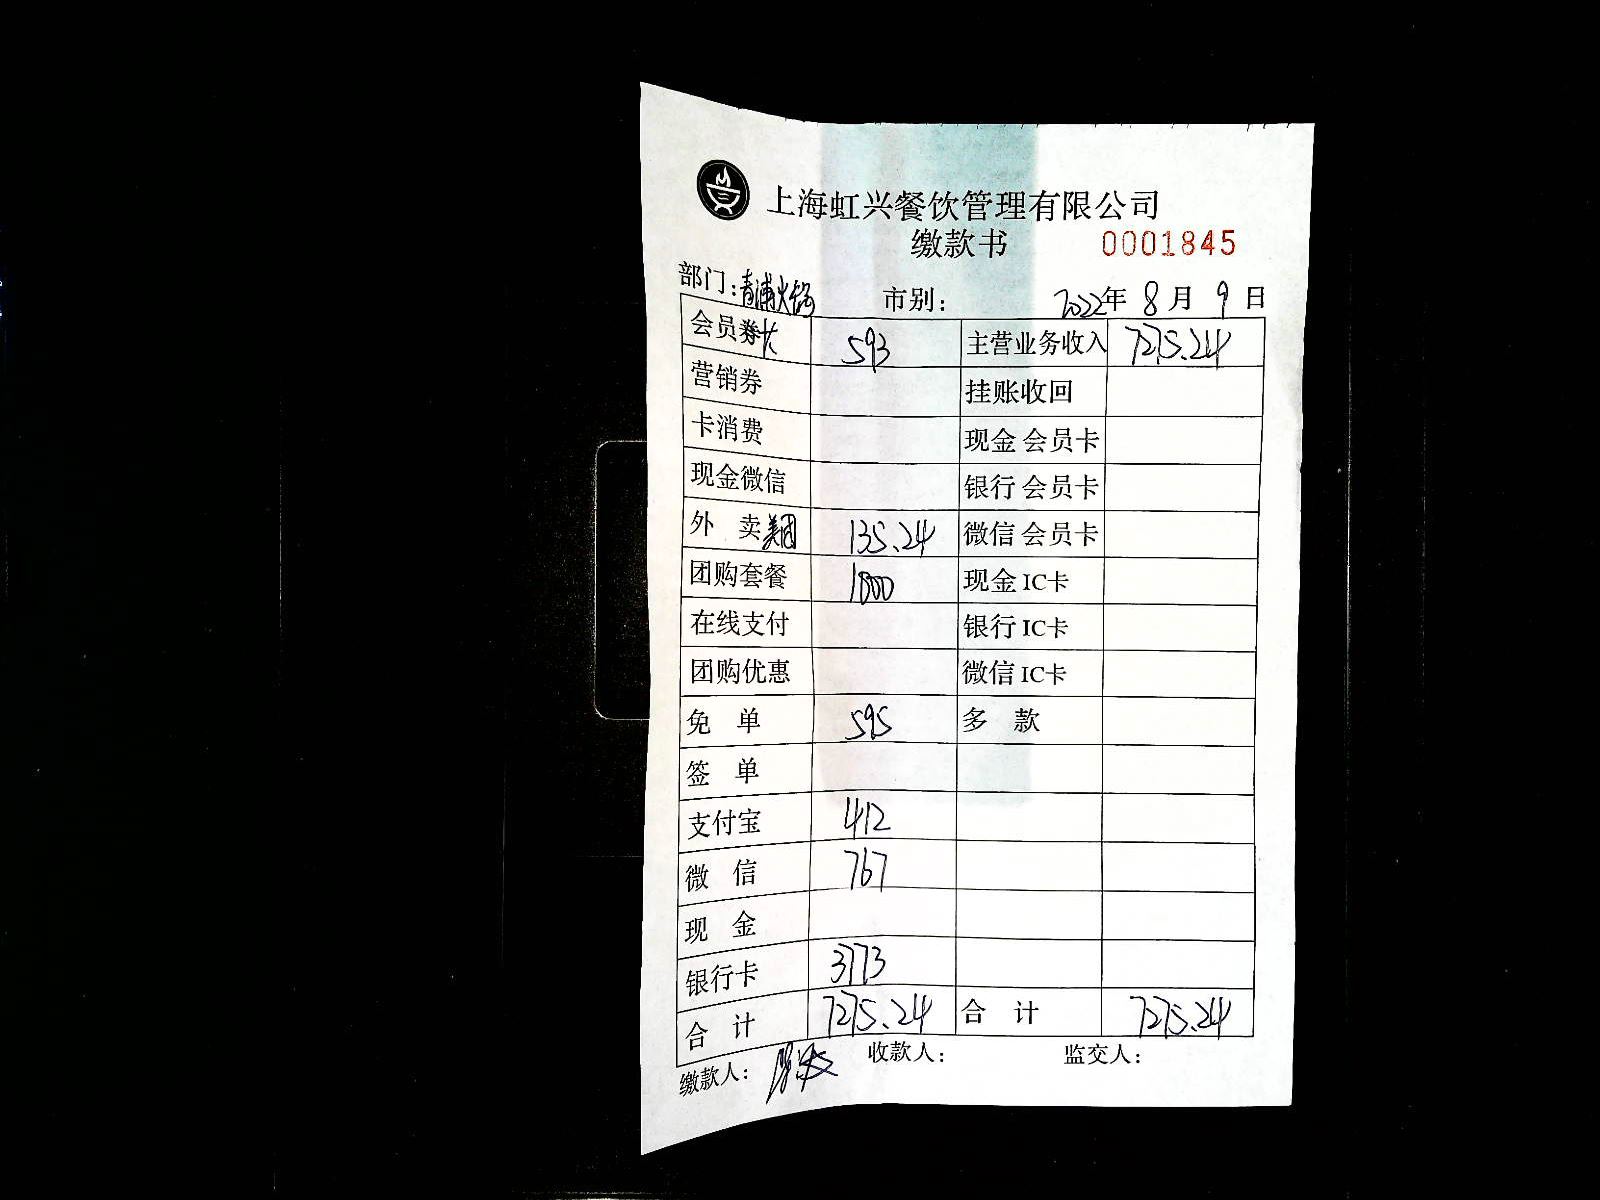 上海虹兴餐饮管理有限公司
缴款书 0001845
部门:青浦火锅 市别: 2022年 8月 9日
会员券卡 593 主营业务收入 7275.24
营销券 挂账收回
卡消费 现金 会员卡
现金微信 银行 会员卡
外 卖美团 135.24 微信 会员卡
团购套餐 1000 现金 IC卡
在线支付 银行 IC卡
团购优惠 微信 IC卡
免 单 595 多 款
签 单
支付宝 412
微 信 767
现 金
银行卡 3773
合 计 7275.24 合 计 7275.24
缴款人: 收款人: 监交人: